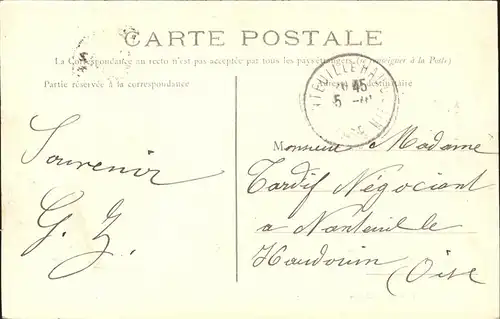 CARTE POSTALE
La Correspondance au recto n'est pas acceptée par tous les pays étrangers (se renseigner à la Poste)
Partie réservée à la correspondance
destinataire
NTEUILLE HAU
45
5
OISE
Souvenir
G. Z.
Monsieur Madame
Tardif Négociant
a Nanteuil le
Haudouin
Oise